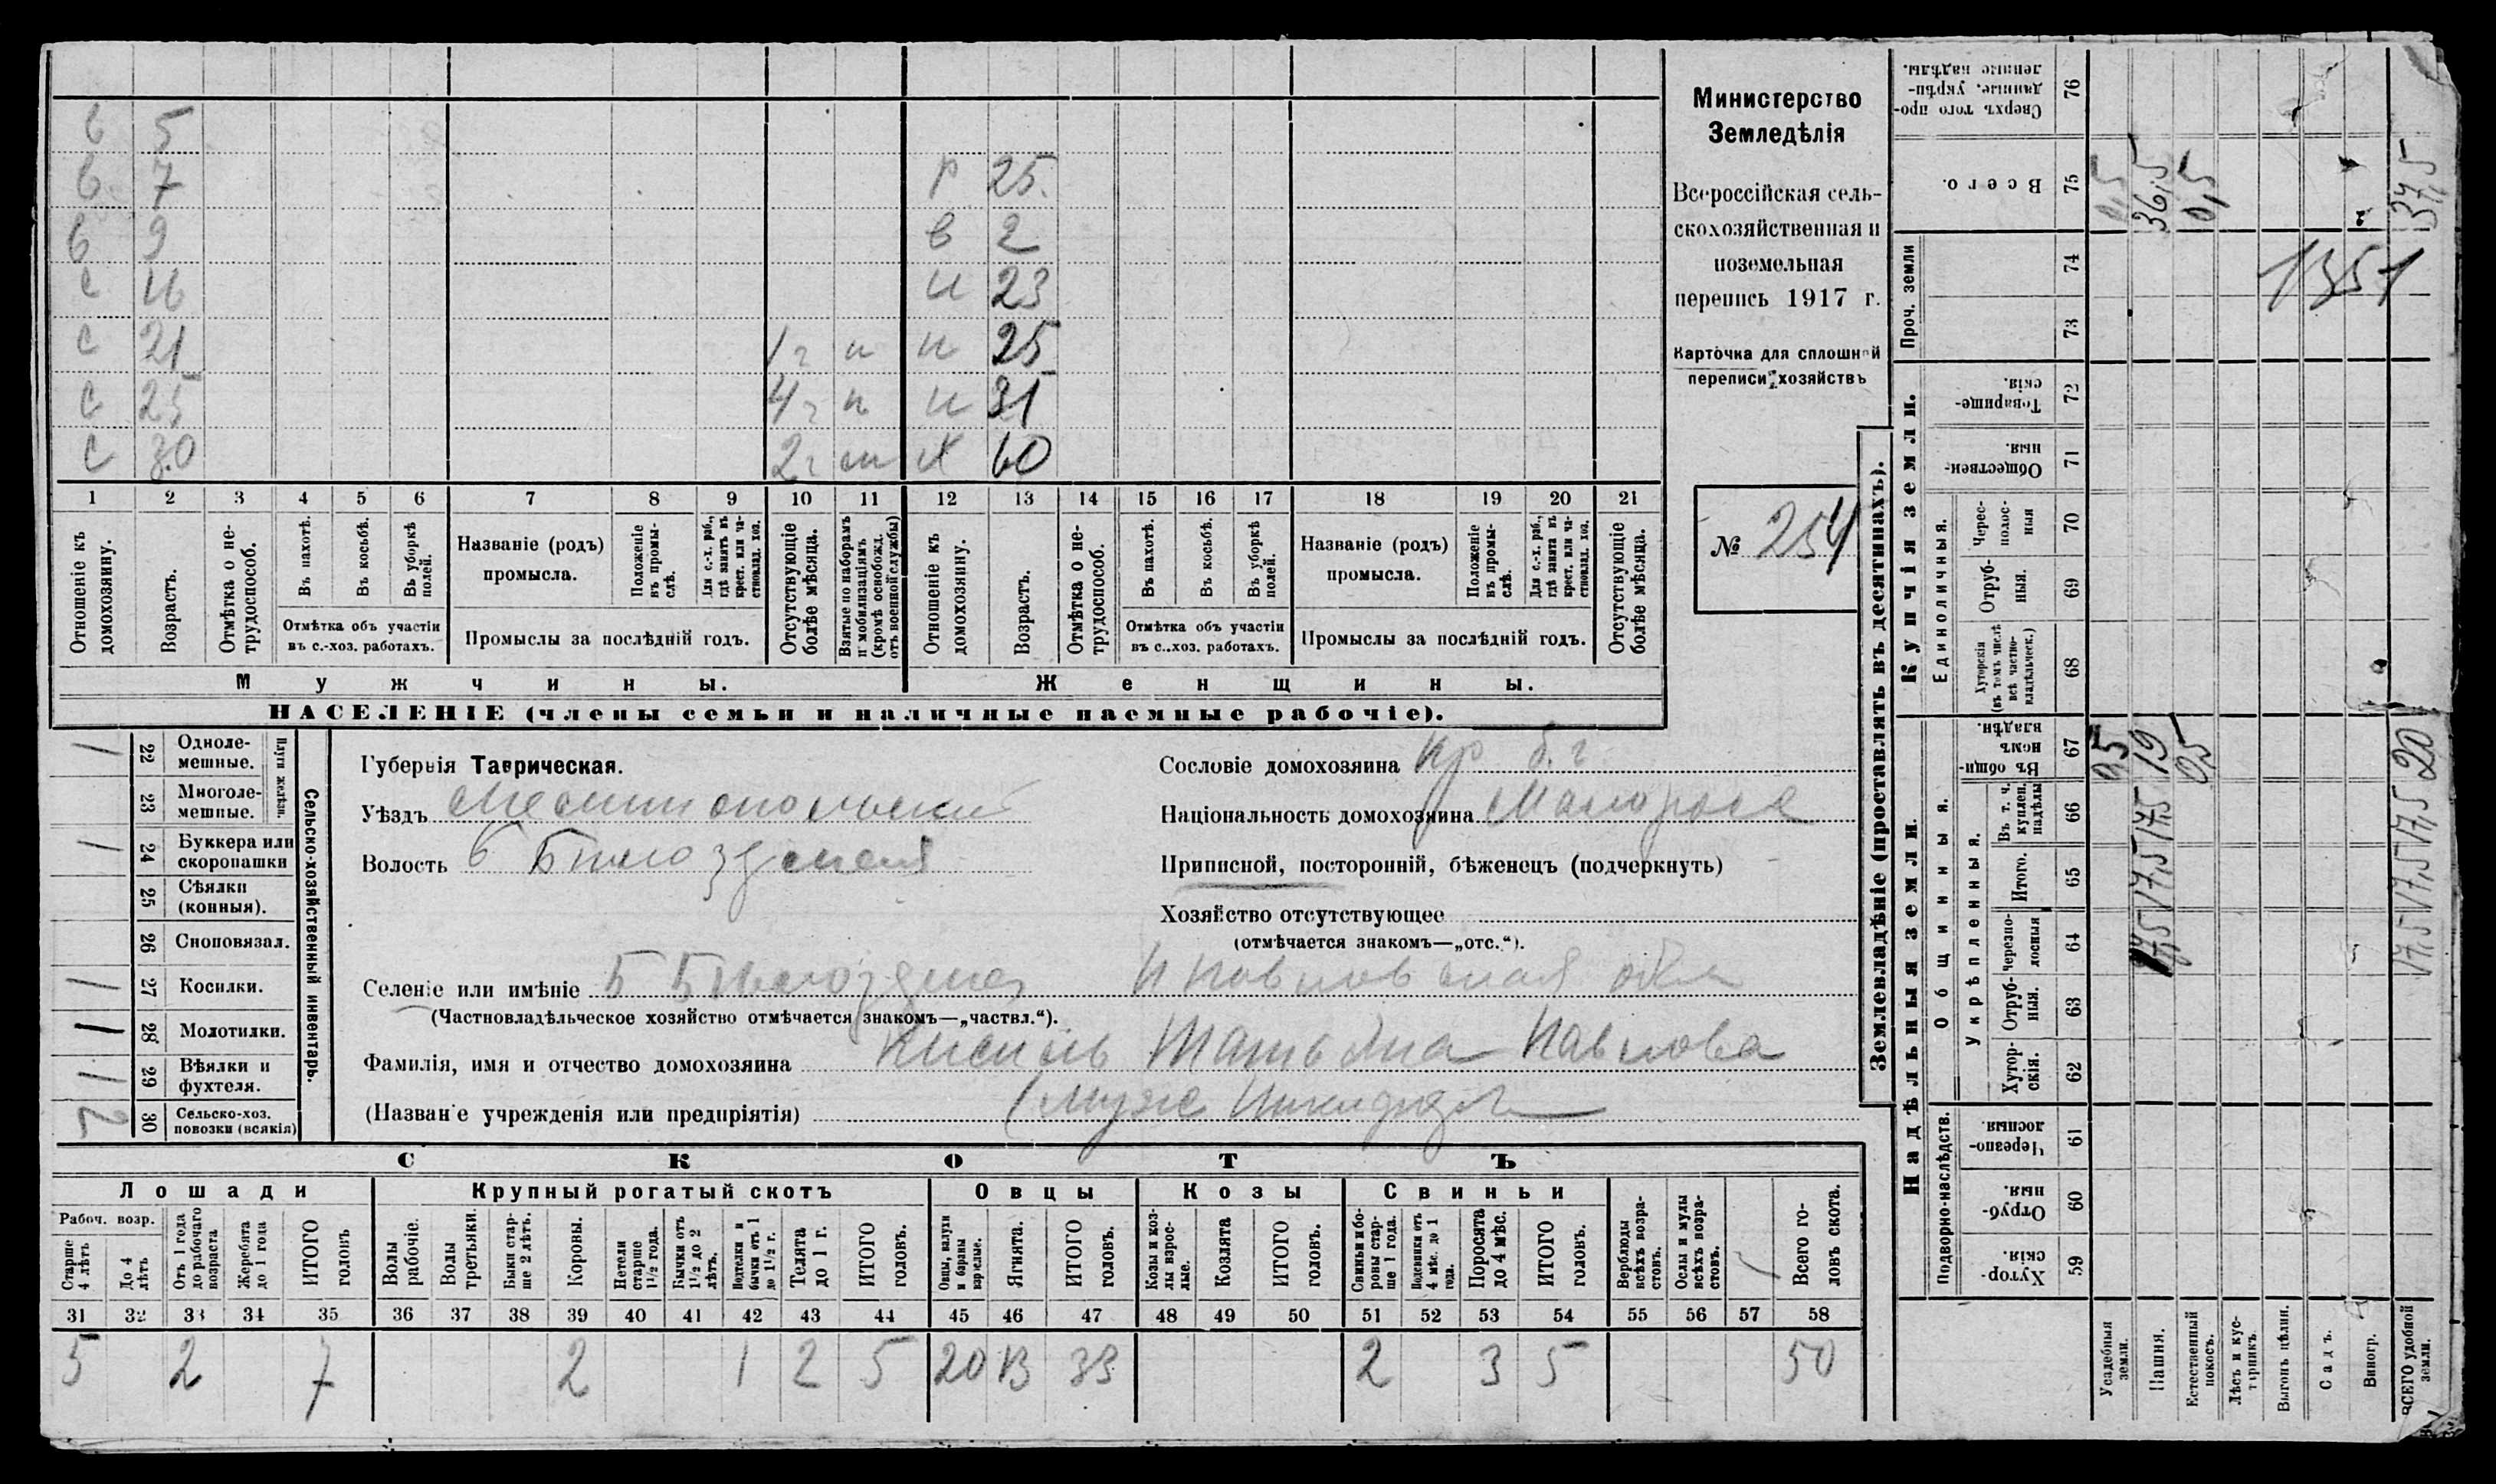 в 5
в 7 р 25.
в 9 в 2
с 16 н 23
с 21 1 г н н 25
с 25 4 г н н 31
с 30 2 г х 60
1 2 3 4 5 6 7 8 9 10 11 12 13 14 15 16 17 18 19 20 21
Отношеніе къ домохозяину.
Возрастъ.
Отмѣтка о не-
трудоспособ.
Въ пахотѣ.
Въ косьбѣ.
Въ уборкѣ полей.
Отмѣтка объ участіи
въ с.-хоз. работахъ.
Названіе (родъ)
промысла.
Положеніе въ промы-
слѣ.
Для с.-х. раб., гдѣ занятъ въ крест. или ча-
стновлад. хоз.
Промыслы за послѣдній годъ.
Отсутствующіе болѣе мѣсяца.
Взятые по наборамъ и мобилизаціямъ (кромѣ освобожд. отъ военной службы)
Отношеніе къ домохозяину.
Возрастъ.
Отмѣтка о не-
трудоспособ.
Въ пахотѣ.
Въ косьбѣ.
Въ уборкѣ полей.
Отмѣтка объ участіи
въ с..хоз. работахъ.
Названіе (родъ)
промысла.
Положеніе въ промы-
слѣ.
Для с.-х. раб., гдѣ занята въ крест. или ча-
стновлад. хоз.
Промыслы за послѣдній годъ.
Отсутствующіе болѣе мѣсяца.
Мужчины.
Женщины.
НАСЕЛЕНІЕ (члены семьи и наличные наемные рабочіе).
Министерство
Земледѣлія
Всероссійская сель-
скохозяйственная и
поземельная
перепись 1917 г.
Карточка для сплошной
переписи хозяйствъ
№ 254
Сельско-хозяйственный инвентарь.
Плуги желѣзн.
1 22 Одноле-
мешные.
23 Многоле-
мешные.
1 24 Буккера или
скоропашки
25 Сѣялки
(конныя).
26 Сноповязал.
1 27 Косилки.
1 28 Молотилки.
1 29 Вѣялки и
фухтеля.
2 30 Сельско-хоз.
повозки (всякія)
Губернія Таврическая.
Уѣздъ Мелитопольскій
Волость Б Бѣлозерская
Сословіе домохозяина кр б. г
Національность домохозяина Малоросс
Приписной, посторонній, бѣженецъ (подчеркнуть)
Хозяйство отсутствующее
(отмѣчается знакомъ—„отс.“).
Селеніе или имѣніе Б Бѣлозерка
(Частновладѣльческое хозяйство отмѣчается знакомъ—„частвл.“).
Фамилія, имя и отчество домохозяина Кисиль Татьяна Павлова
(Названіе учрежденія или предпріятія) (муже Никифоръ
СКОТЪ
Лошади
Крупный рогатый скотъ
Овцы
Козы
Свиньи
Рабоч. возр.
Старше 4 лѣтъ
До 4 лѣтъ
Отъ 1 года до рабочаго возраста
Жеребята до 1 года
ИТОГО головъ
Волы рабочіе.
Волы третьяки.
Быки стар-
ше 2 лѣтъ.
Коровы.
Нетели старше 1½ года.
Бычки отъ 1½ до 2 лѣтъ.
Подтелки и бычки отъ 1 до 1½ г.
Телята до 1 г.
ИТОГО головъ.
Овцы, валухи и бараны взрослые.
Ягнята.
ИТОГО головъ.
Козы и коз-
лы взрос-
лые.
Козлята
ИТОГО головъ.
Свиньи и бо-
ровы стар-
ше 1 года.
Подсвинки отъ 4 мѣс. до 1 года.
Поросята до 4 мѣс.
ИТОГО головъ.
Верблюды всѣхъ возра-
стовъ.
Ослы и мулы всѣхъ возра-
стовъ.
Всего го-
ловъ скота.
31 32 33 34 35 36 37 38 39 40 41 42 43 44 45 46 47 48 49 50 51 52 53 54 55 56 57 58
5 2 7 2 1 2 5 20 13 33 2 3 5 50
Землевладѣніе (проставлять въ десятинахъ).
Надѣльныя земли.
Подворно-наслѣдств.
Хутор-
скія. 59
Отруб-
ныя. 60
Черезпо-
лосныя. 61
Общинныя.
Укрѣпленныя.
Хутор-
скія. 62
Отруб-
ныя. 63
Черезпо-
лосныя 64
Итого. 65
Въ т. ч. куплен. надѣлы 66
Въ общин-
номъ владѣн. 67
Купчія земли.
Единоличныя.
Хуторскія (въ томъ числѣ всѣ частно-
владѣльческ.) 68
Отруб-
ныя. 69
Черес-
полос-
ныя 70
Обществен-
ныя. 71
Товарище-
скія. 72
Проч. земли
73 74
Всего. 75
Сверхъ того про-
данные, укрѣп-
ленные надѣлы. 76
Усадебныя земли. 0,5 0,5
Пашня. 17,5 17,5 17,5 19 36,5
Естественный покосъ. 0,5 0,5
Лѣсъ и кус-
тарникъ.
Выгонъ цѣлин.
Садъ.
Виногр.
ВСЕГО удобной земли. 17,5 17,5 17,5 20 37,5
1351